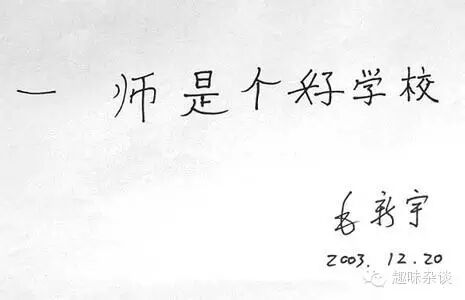 一师是个好学校
毛新宇
2003.12.20
趣味杂谈